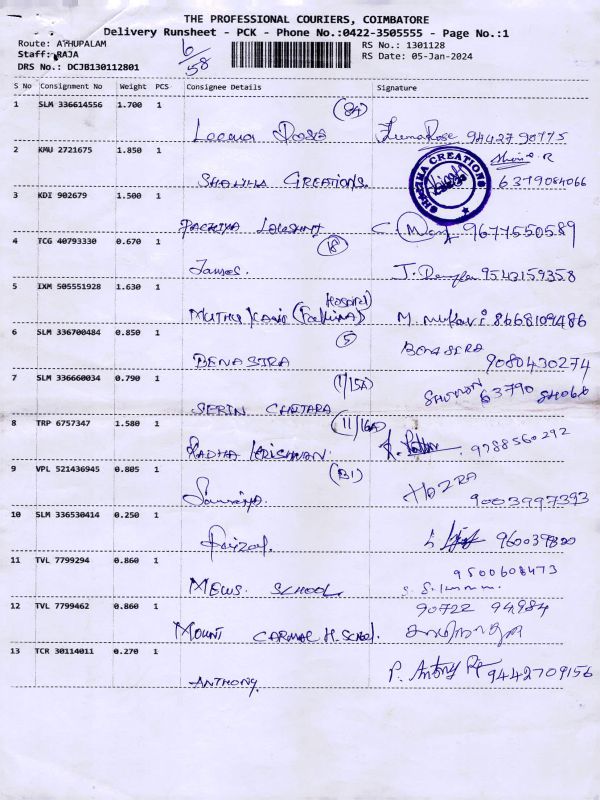 THE PROFESSIONAL COURIERS, COIMBATORE
Delivery Runsheet - PCK - Phone No.:0422-3505555 - Page No.:1
Route: ATHUPALAM 6/58 RS No.: 1301128
Staff: RAJA RS Date: 05-Jan-2024
DRS No.: DCJB130112801
S No Consignment No Weight PCS Consignee Details Signature
1 SLM 336614556 1.700 1
9442790775
2 KMU 2721675 1.850 1
CREATIONS R
CREATIONS. 6379084066
3 KDI 902679 1.500 1
LAKSHMI 9677550589
4 TCG 40793330 0.670 1 (18)
James. 9543159358
5 IXM 505551928 1.630 1 Hospital
MUTHU (Fathima) M. 8668109486
6 SLM 336700484 0.850 1 (5)
BENASIRA BENASIRA 9080430274
7 SLM 336660034 0.790 1 (1/15A)
SERIN 63790
8 TRP 6757347 1.580 1 (11/16A)
RADHA KRISHNAN. 9788560292
9 VPL 521436945 0.805 1 (B1)
HOZRA
9003997393
10 SLM 336530414 0.250 1
Faizal.
11 TVL 7799294 0.860 1 9500608473
MEWS. SCHOOL.
12 TVL 7799462 0.860 1 90722 94984
MOUNT CARMAL H. School.
13 TCR 30114011 0.270 1
ANTHONY. P. Antony 9442709156